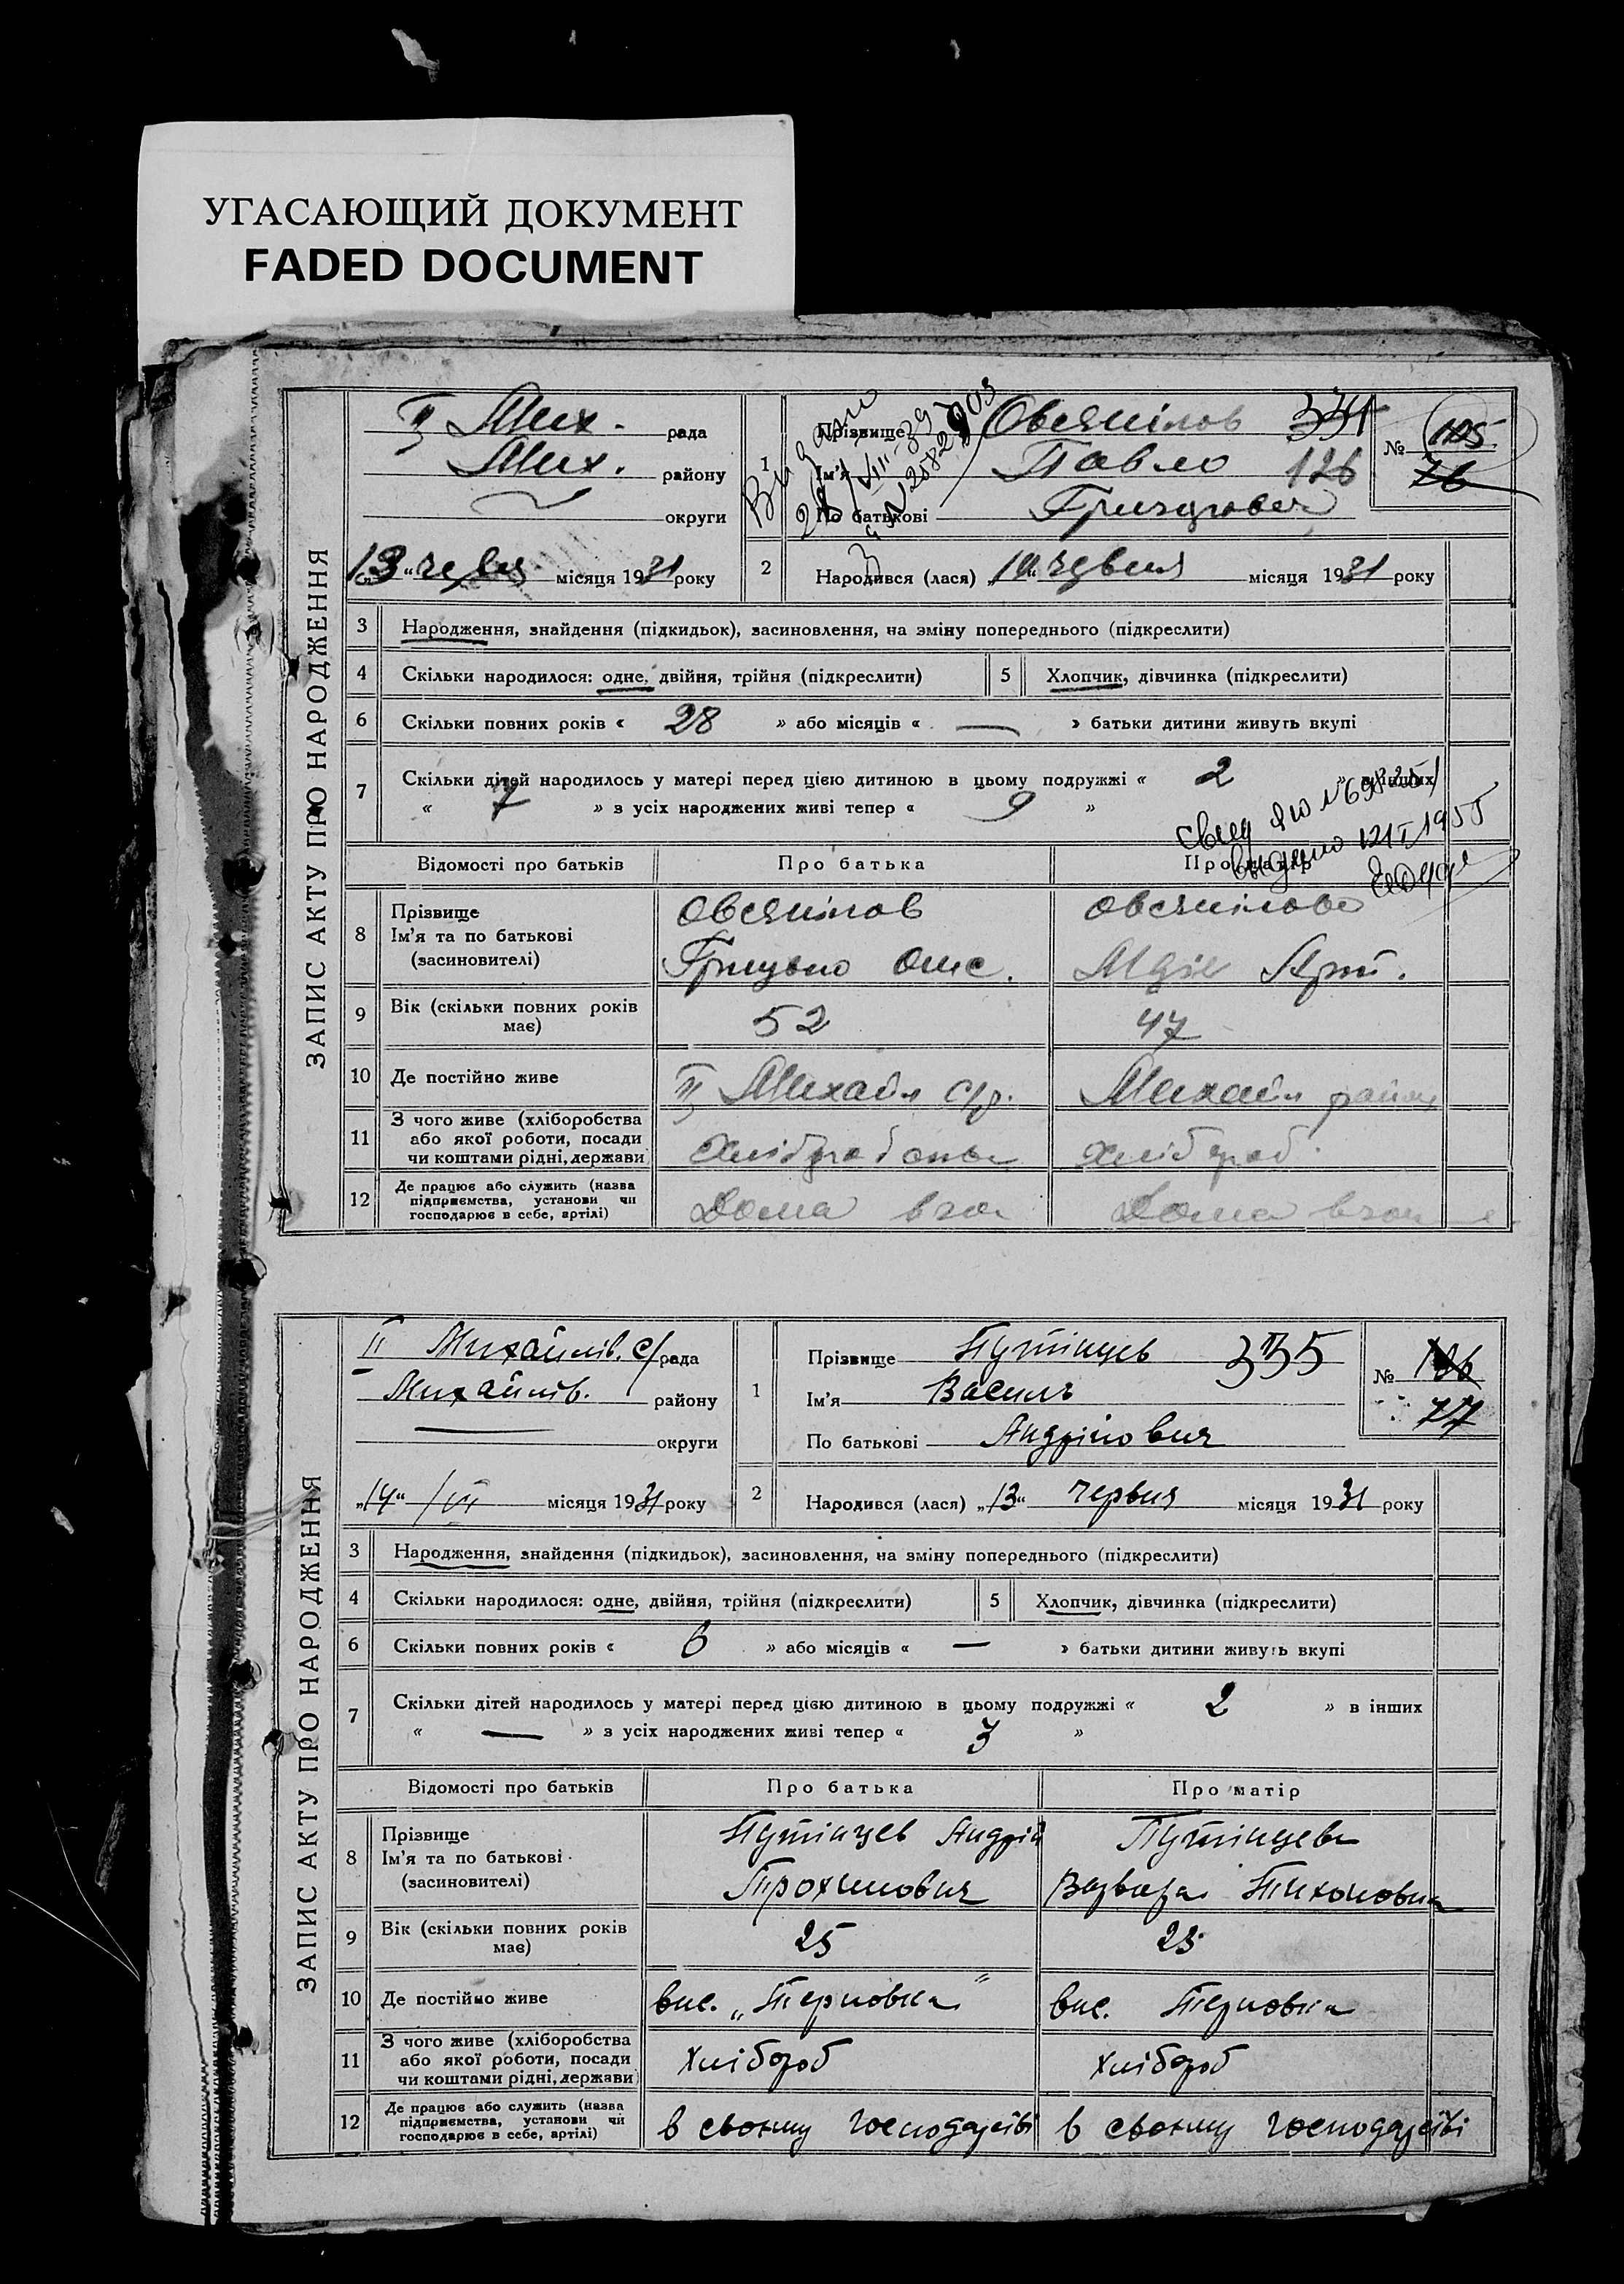 УГАСАЮЩИЙ ДОКУМЕНТ
FADED DOCUMENT
ЗАПИС АКТУ ПРО НАРОДЖЕННЯ
II Мих. рада
Мих. району
округи
"13" червня місяця 1931 року
1
Прізвище Овсяніков 334
Ім'я Павло 126
По батькові
№ 105
76
Видано
2 Народився (лася) "10" червня місяця 1931 року
3 Народження, знайдення (підкидьок), засиновлення, на зміну попереднього (підкреслити)
4 Скільки народилося: одне, двійня, трійня (підкреслити) 5 Хлопчик, дівчинка (підкреслити)
6 Скільки повних років « 28 » або місяців « — » батьки дитини живуть вкупі
7 Скільки дітей народилось у матері перед цією дитиною в цьому подружжі « 2 » в інших
« 7 » з усіх народжених живі тепер « 9 »
Відомості про батьків Про батька Про матір
8 Прізвище
Ім'я та по батькові
(засновителі)
Овсяніков
Овсянікова
9 Вік (скільки повних років має) 52 47
10 Де постійно живе II Михайл с/р. Михайл району
11 З чого живе (хліборобства
або якої роботи, посади
чи коштами рідні, держави
хлібороб
12 Де працює або служить (назва
підприємства, установи чи
господарює в себе, артілі)
Дома Дома
ЗАПИС АКТУ ПРО НАРОДЖЕННЯ
II Михайлів. с/рада
Михайлів. району
округи
"14" / VI місяця 1931 року
1
Прізвище Путінцев 335
Ім'я Василь
По батькові Андрійович
№ 106
77
2 Народився (лася) "13" червня місяця 1931 року
3 Народження, знайдення (підкидьок), засиновлення, на зміну попереднього (підкреслити)
4 Скільки народилося: одне, двійня, трійня (підкреслити) 5 Хлопчик, дівчинка (підкреслити)
6 Скільки повних років « 6 » або місяців « — » батьки дитини живуть вкупі
7 Скільки дітей народилось у матері перед цією дитиною в цьому подружжі « 2 » в інших
« — » з усіх народжених живі тепер « 3 »
Відомості про батьків Про батька Про матір
8 Прізвище
Ім'я та по батькові
(засиновителі)
Путінцев Андрій
Трохимович
Путінцева
Варвара Тихоновна
9 Вік (скільки повних років має) 25 23
10 Де постійно живе вис. „Терновка" вис. Терновка
11 З чого живе (хліборобства
або якої роботи, посади
чи коштами рідні, держави
хлібороб хлібороб
12 Де працює або служить (назва
підприємства, установи чи
господарює в себе, артілі)
в своєму господарстві в своєму господарстві